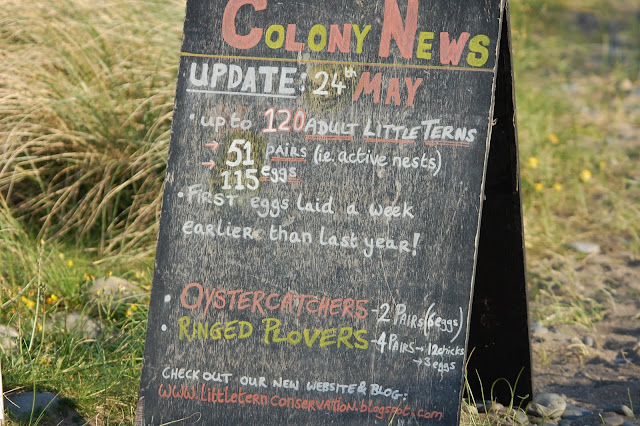 Colony News
UPDATE: 24th MAY
• up to 120 ADULT LITTLE TERNS
→ 51 pairs (ie. active nests)
→ 115 eggs
• FIRST eggs laid a week
earlier than last year!
• OYSTERCATCHERS - 2 PAIRS (6 eggs)
• RINGED PLOVERS - 4 PAIRS → 12 chicks
→ 3 eggs
CHECK OUT OUR NEW WEBSITE & BLOG:
www.littleternconservation.blogspot.com